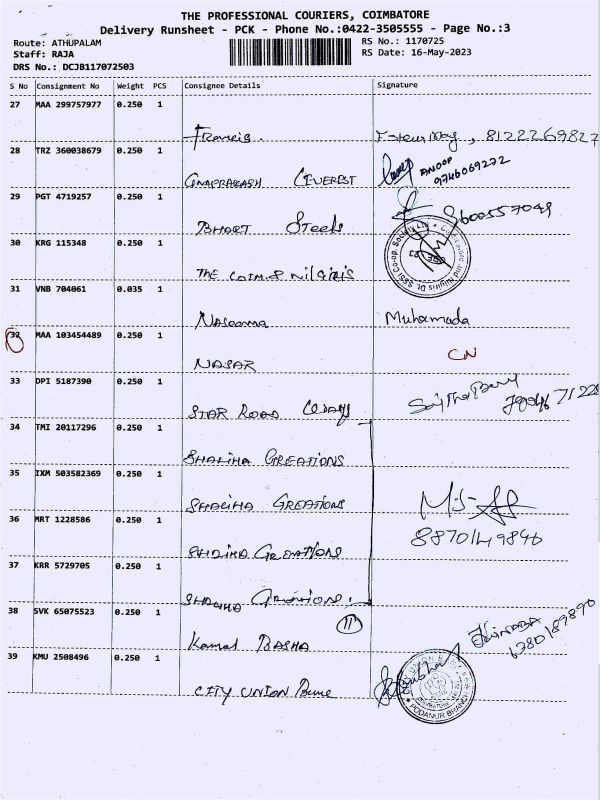 THE PROFESSIONAL COURIERS, COIMBATORE
Delivery Runsheet - PCK - Phone No.:0422-3505555 - Page No.:3
Route: ATHUPALAM RS No.: 1170725
Staff: RAJA RS Date: 16-May-2023
DRS No.: DCJB117072503
S No Consignment No Weight PCS Consignee Details Signature
27 MAA 299757977 0.250 1
Francis. 8122269827
28 TRZ 360038679 0.250 1
EVEREST ANOOP 9746069272
29 PGT 4719257 0.250 1
BHART Steels 9600557049
30 KRG 115348 0.250 1
THE COIM & Nilgiris
31 VNB 704061 0.035 1
Naseema Muhamada
32 MAA 103454489 0.250 1
NASAR CN
33 DPI 5187390 0.250 1
STAR ROAD
34 TMI 20117296 0.250 1
SHALIHA GREATIONS
35 IXM 503582369 0.250 1
SHALIHA GREATIONS
36 MRT 1228586 0.250 1
SHALIHA GREATIONS 8870149846
37 KRR 5729705 0.250 1
38 SVK 65075523 0.250 1
11
Kamal BASHA 6380189890
39 KMU 2508496 0.250 1
CITY UNION
PODANUR BRANCH